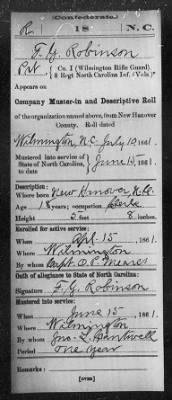 (Confederate.)
R. 18 N.C.
F. G. Robinson
Pvt, Co. I (Wilmington Rifle Guard)
8 Regt North Carolina Inf. (Vols.)*
Appears on
Company Muster-in and Descriptive Roll
of the organization named above, from New Hanover
County. Roll dated
Wilmington N.C. July 10, 1861.
Mustered into service of
State of North Carolina,
to date June 15, 1861.
Description:
Where born New Hanover N.C.
Age 18 years; occupation Clerk
Height 5 feet 8 inches.
Enrolled for active service:
When Apl. 15, 1861.
Where Wilmington
By whom Capt. O. P. Meares
Oath of allegiance to State of North Carolina:
Signature F. G. Robinson
Mustered into service:
When June 15, 1861.
Where Wilmington
By whom Jno. L. Cantwell
Period One Year
Remarks: